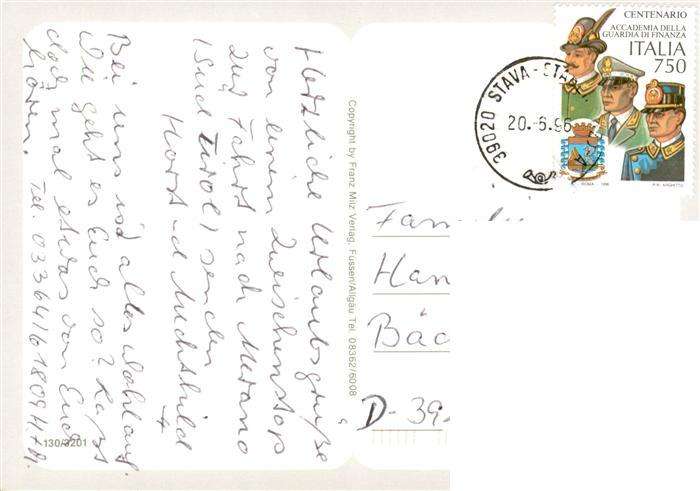 Herzliche Urlaubsgrüße
von einem Zwischenstop
zur Fahrt nach Merano
(Südtirol) senden
Horst und Mechthild
Bei uns ist alles wohlauf.
Wie geht es Euch so? Laßt
doch mal etwas von Euch
hören.
Tel. 03364/61809
130/3201
Copyright by Franz Milz Verlag, Füssen/Allgäu Tel. 08362/6008
CENTENARIO
ACCADEMIA DELLA
GUARDIA DI FINANZA
ITALIA
750
ROMA
39020 STAVA-STAB
20.-6.96
Han
Bäc
D-39